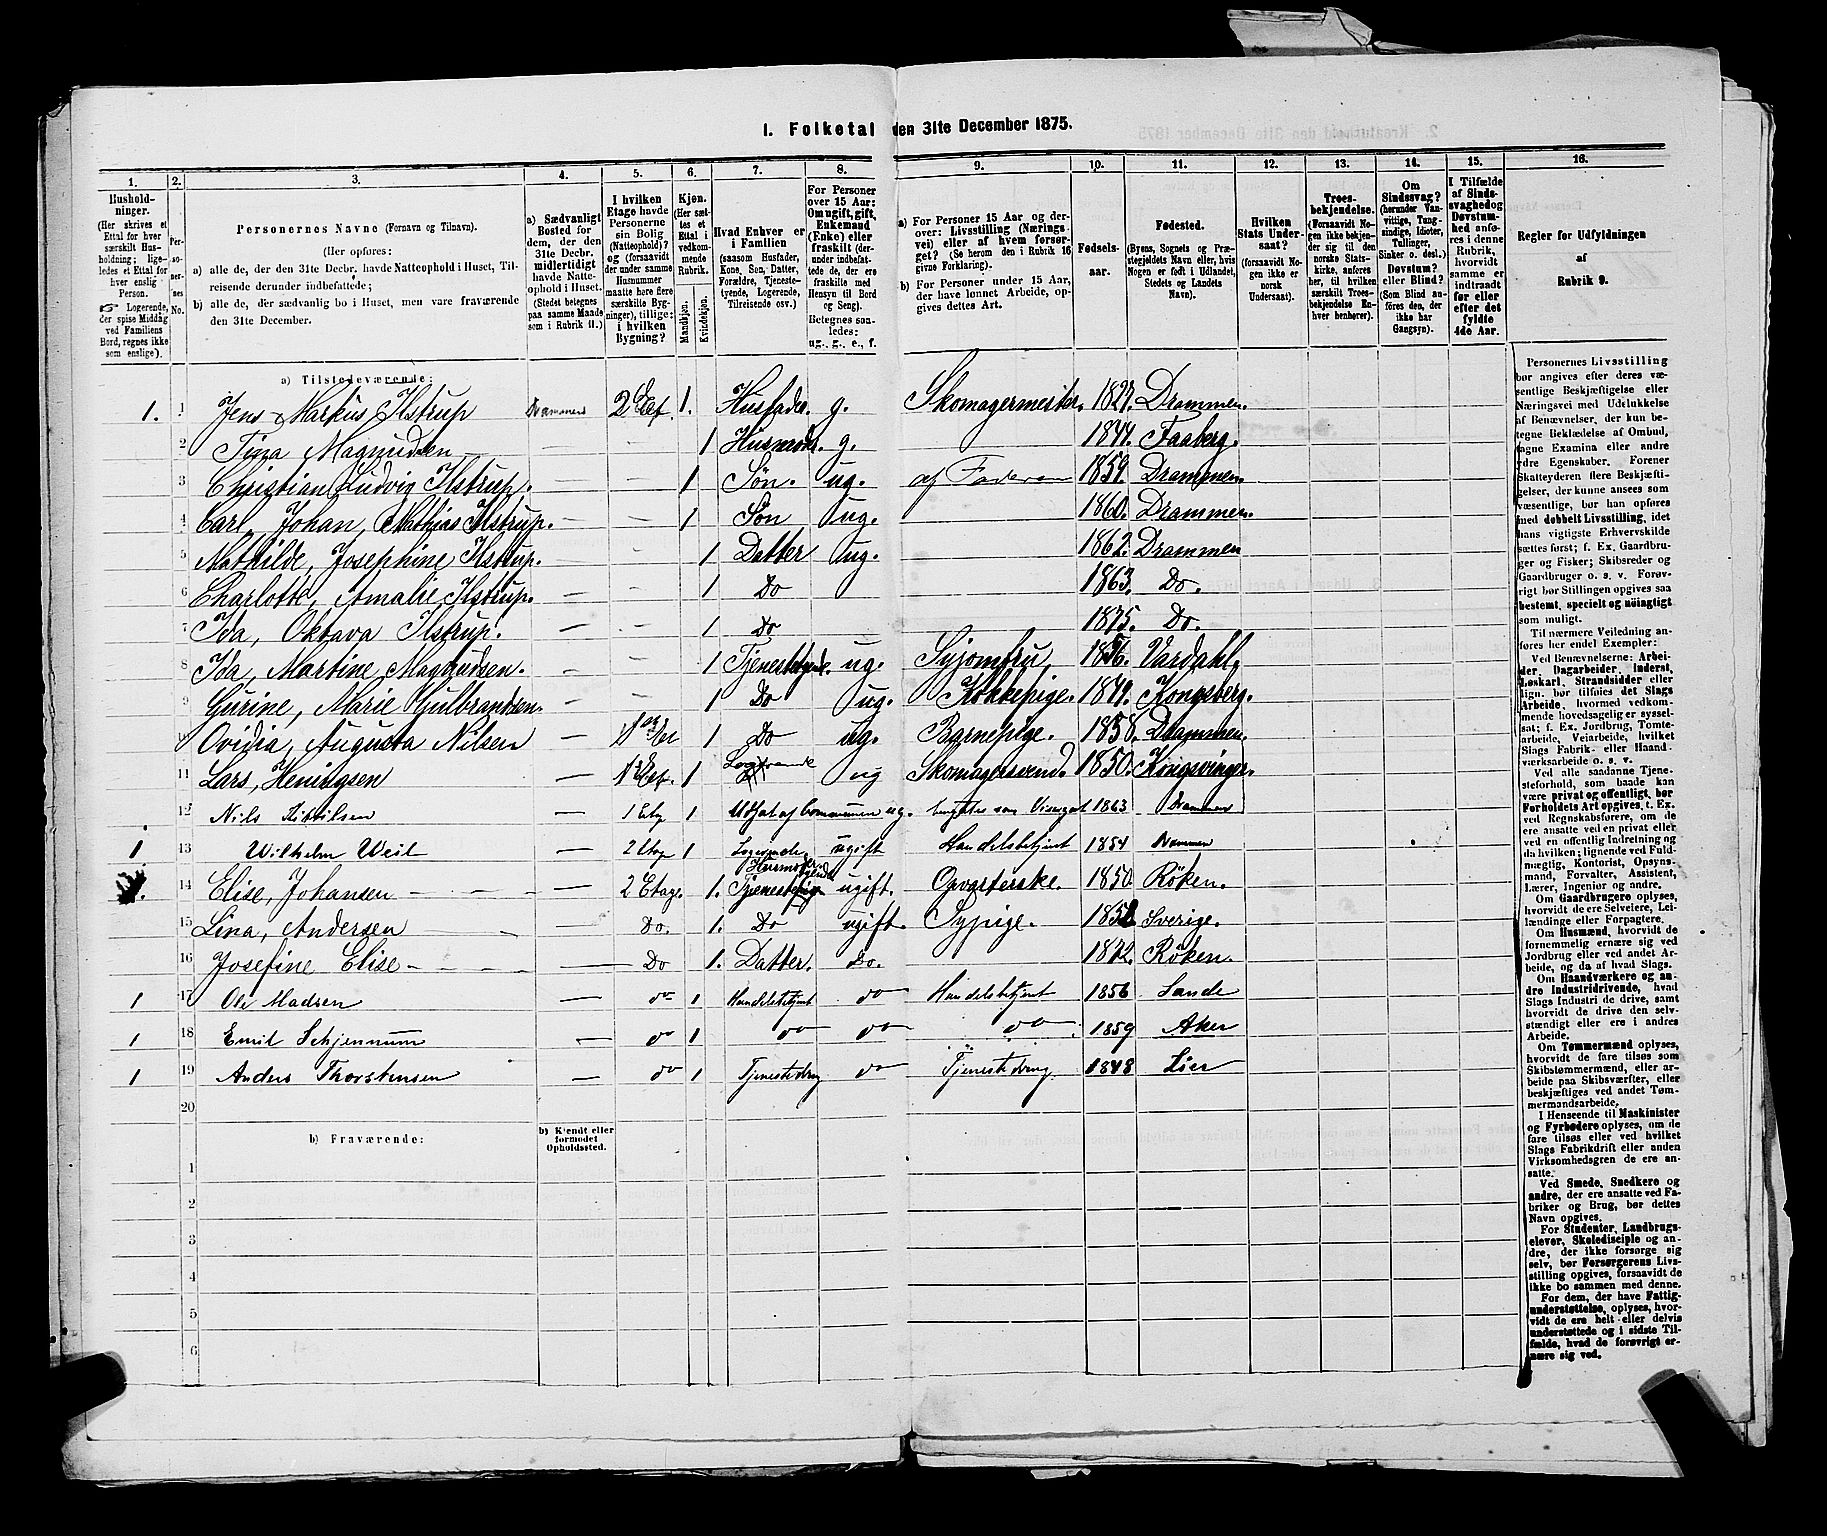 1. Folketal den 31te December 1875.
1. 2. 3. 4. 5. 6. 7. 8. 9. 10. 11. 12. 13. 14. 15. 16.
Husholdninger.
(Her skrives et
Ettal for hver
særskilt Husholdning; ligeledes
et Ettal for
hver enslig
Person.
Logerende,
der spise Middag
ved Familiens
Bord, regnes ikke
som enslige).
Personernes No.
Personernes Navne (Fornavn og Tilnavn).
(Her opføres:
a) alle de, der den 31te Decbr. havde Natteophold i Huset, Tilreisende
derunder indbefattede;
b) alle de, der sædvanlig bo i Huset, men vare fraværende
den 31te December.
a) Sædvanligt
Bosted for
dem, der den
31te Decbr.
midlertidigt
havde Natteophold
i Huset.
(Stedet betegnes
paa samme Maade
som i Rubrik 11.)
I hvilken
Etage havde
Personerne
sin Bolig
(Natteophold)?
og (forsaavidt
der under samme
Husnummer
maatte høre flere
særskilte Bygninger),
tillige:
i hvilken
Bygning?
Kjøn.
(Her sættes
et
Ettal i
vedkommende
Rubrik.
Mandkjøn.
Kvindekjøn.
Hvad Enhver er
i Familien
(saasom Husfader,
Kone, Son, Datter,
Forældre, Tjenestetyende,
Logerende,
Tilreisende osv.)
For Personer
over 15 Aar:
Om ugift, gift,
Enkemand
(Enke) eller
fraskilt (derunder
indbefattede
de, der ere
fraskilte med
Hensyn til Bord
og Seng).
Betegnes saaledes:
ug., g., e., f.
a) For Personer 15 Aar og derover:
Livsstilling (Næringsvei)
eller af hvem forsørget?
(Se herom den i Rubrik 16
givne Forklaring).
b) For Personer under 15 Aar,
der have lønnet Arbeide, opgives
dettes Art.
Fødselsaar.
Fødested.
(Byens, Sognets og Præstegjeldets
Navn eller, hvis
Nogen er født i Udlandet,
Stedets og Landets
Navn).
Hvilken
Stats Undersaat?
(forsaavidt Nogen
ikke er
norsk
Undersaat).
Troesbekjendelse.
(Forsaavidt Nogen
ikke bekjender
sig til den
norske Statskirke,
anføres
her, til hvilken
særskilt Troesbekjendelse
Enhver
benhører).
Om
Sindssvag?
(herunder Vanvittige,
Idioter, Tungsindige,
Tullinger,
Sinker o. desl.)
Døvstum?
eller Blind?
(Som Blind anføres
den, der
ikke har
Gangsyn).
I Tilfælde
af Sindssvaghed
og
Døvstumhed
anføres
i denne
Rubrik,
hvorvidt
samme er
indtraadt
før eller
efter det
fyldte
4de Aar.
Regler for Udfyldningen
af
Rubrik 9.
a) Tilstedeværende:
1. 1 Jens Markus Ilstrup Drammens 2 Et. 1. Husfader. g. Skomagermester. 1827. Drammen.
2 Tina Magnudsen — — 1 Husmoder g. 1844. Faaberg.
3 Christian Ludvig Ilstrup. — — 1 Søn. ug. af Faderen 1859. Drammen.
4 Carl, Johan, Mathias Ilstrup. — — 1 Søn ug. 1860. Drammen.
5 Mathilde, Josephine Ilstrup. — — 1 Datter ug. 1862. Drammen
6 Charlotte, Amalie Ilstrup. — — 1 Do 1863. Do.
7 Ida, Oktava Ilstrup. — — 1 Do 1875. Do.
8 Ida, Martine Magnudsen. — — 1 Tjenestetyende. ug. Syjomfru 1856. Vardahl,
9 Gurine, Marie Gulbrandsen. — 1 Do ug. Kokkepige. 1849. Kongsberg.
Ovidia, Augusta Nilsen — 1 Do ug. Barnepige. 1858. Drammen.
11 Lars, Heningsen — 1 Et. 1 Logerende ug Skomagersvend. 1850. Kongsvinger.
12 Nils — 1 Etg 1 Udsat af Communen ug. benyttes som Visergut 1863 Drammen
1 Wilhelm Weil — 2 Etage 1 Logerende ugift Handelsbetjent 1854 Drammen
14 Elise, Johansen — 2 Etage. 1. Husmoder ugift. Opvarterske. 1850 Røken.
15 Lina, Andersen — Do. 1. Do ugift. Sypige. Sverige.
16 Josefine Elise — Do 1. Datter. Do. 1872. Røken.
1 17 Ole Madsen — do 1 Handelsbetjent do Handelsbetjent 1856 Sande
1 18 Emil Schjennum — do 1 do do do 1859 Aker
1 19 Anders Thorstensen — do 1 Tjenestedreng do Tjenestedreng 1848 Lier
20
b) Fraværende:
b) Kjendt eller
formodet
Opholdssted.
1
2
3
4
5
6
Personernes Livsstilling
bør angives efter deres væsentlige
Beskjæftigelse eller
Næringsvei med Udelukkelse
af Benævnelser, der kun betegne
Beklædelse af Ombud,
tagne Examina eller andre
ydre Egenskaber. Forener
Skatteyderen flere Beskjæftigelser,
der kunne ansees som
væsentlige, bør han opføres
med dobbelt Livsstilling, idet
hans vigtigste Erhvervskilde
sættes først; f. Ex. Gaardbruger
og Fisker; Skibsreder og
Gaardbruger o. s. v. Forøvrigt
bør Stillingen opgives saa
bestemt, specielt og nøiagtigt
som muligt.
Til nærmere Veiledning anføres
her endel Exempler:
Ved Benævnelserne: Arbeider,
Dagarbeider, Inderst,
Løskarl, Strandsidder eller
lign. bør tilføies det Slags
Arbeide, hvormed vedkommende
hovedsagelig er sysselsat;
f. Ex. Jordbrug, Tomtearbeide,
Veiarbeide, hvilket
Slags Fabrik- eller Haandværksarbeide
o. s. v.
Ved alle saadanne Tjenesteforhold,
som baade kan
være privat og offentligt, bør
Forholdets Art opgives, t. Ex.
ved Regnskabsførere, om de
ere ansatte ved en privat eller
en offentlig Indretning og
da hvilken; lignende ved Fuldmægtig,
Kontorist, Opsynsmand,
Forvalter, Assistent,
Lærer, Ingeniør og andre.
Om Gaardbrugere oplyses,
hvorvidt de ere Selveiere, Leilændinge
eller Forpagtere.
Om Husmænd, hvorvidt de
fornemmelig ernære sig ved
Jordbrug eller ved andet Arbeide,
og da af hvad Slags.
Om Haandværkere og andre
Industridrivende, hvad
Slags Industri de drive, samt
hvorvidt de drive den selvstændigt
eller ere i andres
Arbeide.
Om Tømmermænd oplyses,
hvorvidt de fare tilsøs som
Skibstømmermænd, eller arbeide
paa Skibsværfter, eller
beskjæftiges ved andet Tømmermandsarbeide.
I Henseende til Maskinister
og Fyrbødere oplyses, om de
fare tilsøs eller ved hvilket
Slags Fabrikdrift eller anden
Virksomhedsgren de ere ansatte.
Ved Smede, Snedkere og
andre, der ere ansatte ved Fabriker
og Brug, bør dettes
Navn opgives.
For Studenter, Landbrugselever,
Skoledisciple og andre,
der ikke forsørge sig
selv, bør Forsørgerens Livsstilling
opgives, forsaavidt de
ikke bo sammen med denne.
For dem, der have Fattigunderstøttelse,
oplyses, hvorvidt
de ere helt eller delvis
understøttede og i sidste Tilfælde,
hvad de forøvrigt ernære
sig ved.